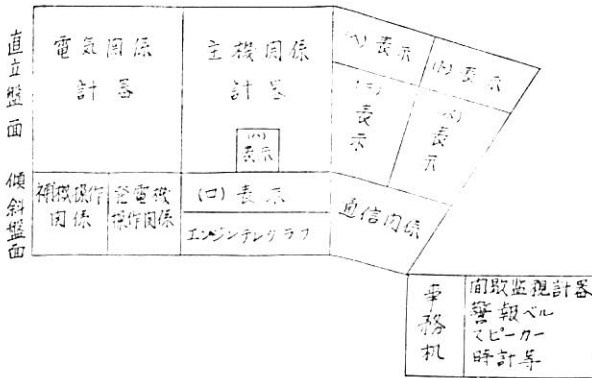 直立盤面
電気関係
計器
主機関係
計器
(ハ)
表示
(ヘ)表示
(ト)表示
(ニ)
表示
表示
傾斜盤面
補機操作
関係
発電機
操作関係
(ロ)表示
エンジンテレグラフ
通信関係
事務机
間歇監視計器
警報ベル
スピーカー
時計等